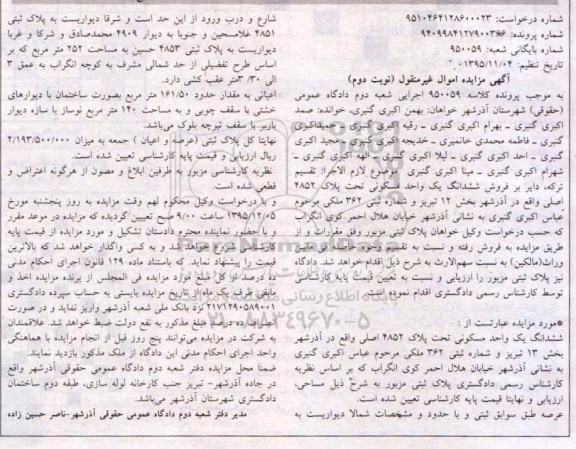 شماره درخواست: ۹۵۱۰۴۶۴۱۲۸۶۰۰۰۲۳
شماره پرونده: ۹۴۰۹۹۸۴۱۲۷۹۰۰۳
شماره بایگانی شعبه: ۹۵۰۰۵۹
تاریخ تنظیم: ۱۳۹۵/۱۱/۰۴
آگهی مزایده اموال غیرمنقول (نوبت دوم)
به موجب پرونده کلاسه ۹۵۰۰۵۹ اجرایی شعبه دوم دادگاه عمومی
(حقوقی) شهرستان آذرشهر خواهان: بهمن اکبری گنبری، خوانده: صمد
اکبری گنبری - بهرام اکبری گنبری - رقیه اکبری گنبری - حمیداکبری
گنبری - فاطمه محمدی خانمیری - خدیجه اکبری گنبری - مجید اکبری
گنبری - احد اکبری گنبری - لیلا اکبری گنبری - الهه اکبری گنبری -
شهرام اکبری گنبری - مینا اکبری گنبری موضوع لازم الاجرا: تقسیم
ترکه، دایر بر فروش ششدانگ یک واحد مسکونی تحت پلاک ۴۸۵۲
اصلی واقع در آذرشهر بخش ۱۲ تبریز و شماره ثبتی ۳۶۲ ملکی مرحوم
عباس اکبری گنبری به نشانی آذرشهر خیابان هلال احمر کوی انگراب
که حسب درخواست وکیل خواهان پلاک ثبتی مزبور وفق مقررات و از
طریق مزایده به فروش رفته و نسبت به تقسیم وجه حاصله بین
وراث(مالکین) به نسبت سهم‌الارث به شرح ذیل اقدام خواهد شد. دادگاه
نیز پلاک ثبتی مزبور را ارزیابی و نسبت به تعیین قیمت پایه کارشناسی
توسط کارشناس رسمی دادگستری اقدام نموده است.
●مورد مزایده عبارتست از :
ششدانگ یک واحد مسکونی تحت پلاک ۴۸۵۲ اصلی واقع در آذرشهر
بخش ۱۳ تبریز و شماره ثبتی ۳۶۲ ملکی مرحوم عباس اکبری گنبری
به نشانی آذرشهر خیابان هلال احمر کوی انگراب که بر اساس نظریه
کارشناس رسمی دادگستری پلاک ثبتی مزبور به شرح ذیل مساحی،
ارزیابی و نهایتا قیمت پایه کارشناسی تعیین شده است.
عرصه طبق سوابق ثبتی و با حدود و مشخصات شمالا دیواریست به
شارع و درب ورود از این حد است و شرقا دیواریست به پلاک ثبتی
۴۸۵۱ غلامحسین و جنوبا به دیوار ۴۹۰۹ محمدصادق و شرکا و غربا
دیواریست به پلاک ثبتی ۴۸۵۳ حسین به مساحت ۲۵۲ متر مربع که بر
اساس طرح تفضیلی از حد شمالی مشرف به کوچه انگراب به عمق ۳
الی ۳/۳۰متر عقب کشی دارد.
اعیانی به مقدار حدود ۱۶۱/۵۰ متر مربع بصورت ساختمان با دیوارهای
خشتی با سقف چوبی و به مساحت ۱۴۰ متر مربع نوساز با سازه دیوار
باربر با سقف تیرچه بلوک می‌باشد.
نهایتا کل پلاک ثبتی (عرصه و اعیان ) جمعه به میزان ۲/۱۹۳/۵۰۰/۰۰۰
ریال ارزیابی و قیمت پایه کارشناسی تعیین شده است.
نظریه کارشناسی مزبور به طرفین ابلاغ و مصون از هرگونه اعتراض و
قطعی شده است.
و با درخواست وکیل محکوم لهم وقت مزایده به روز پنجشنبه مورخ
۱۳۹۵/۱۲/۰۵ ساعت ۹/۰۰ صبح تعیین گردیده که مزایده در موعد مقرر
و با حضور نماینده محترم دادستان تشکیل و مورد مزایده از قیمت پایه
کارشناسی شروع و به کسی واگذار خواهد شد که بالاترین
قیمت را پیشنهاد نماید. که باستناد ماده ۱۲۹ قانون اجرای احکام مدنی
ده درصد از کل مبلغ مورد مزایده فی المجلس از برنده مزایده اخذ و
مابقی ظرف یک ماه از تاریخ مزایده بایستی به حساب سپرده دادگستری
۲۱۷۱۲۹۰۵۸۹۰۰۱ نزد بانک ملی شعبه آذرشهر واریز نماید و در صورت
درصد مبلغ مذکور به نفع دولت ضبط خواهد شد. علاقمندان
به شرکت در مزایده می‌توانند پنج روز قبل از انجام مزایده با هماهنگی
واحد اجرای احکام مدنی این دادگاه از ملک مذکور بازدید نمایند.
ضمنا محل مزایده دفتر شعبه دوم دادگاه عمومی حقوقی آذرشهر واقع
در جاده آذرشهر- تبریز جنب کارخانه لوله سازی، طبقه دوم ساختمان
دادگستری شهرستان آذرشهر می‌باشد.
مدیر دفتر شعبه دوم دادگاه عمومی حقوقی آذرشهر-ناصر حسین زاده